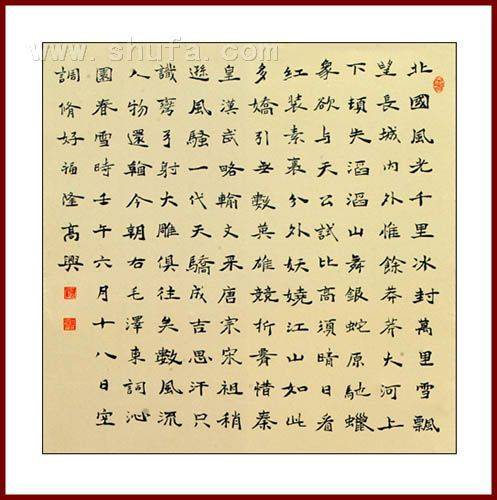 www.shufa.com
北國風光千里冰封萬里雪飄
望長城內外惟餘莽莽大河上
下頓失滔滔山舞銀蛇原馳蠟
象欲与天公試比高須晴日看
紅装素裹分外妖嬈江山如此
多嬌引无數英雄競折腰惜秦
皇漢武略輸文采唐宗宋祖稍
遜風騷一代天驕成吉思汗只
識彎弓射大雕俱往矣數風流
人物還看今朝右毛澤東詞沁
園春雪時壬午六月十八日室
調脩好福隆高興